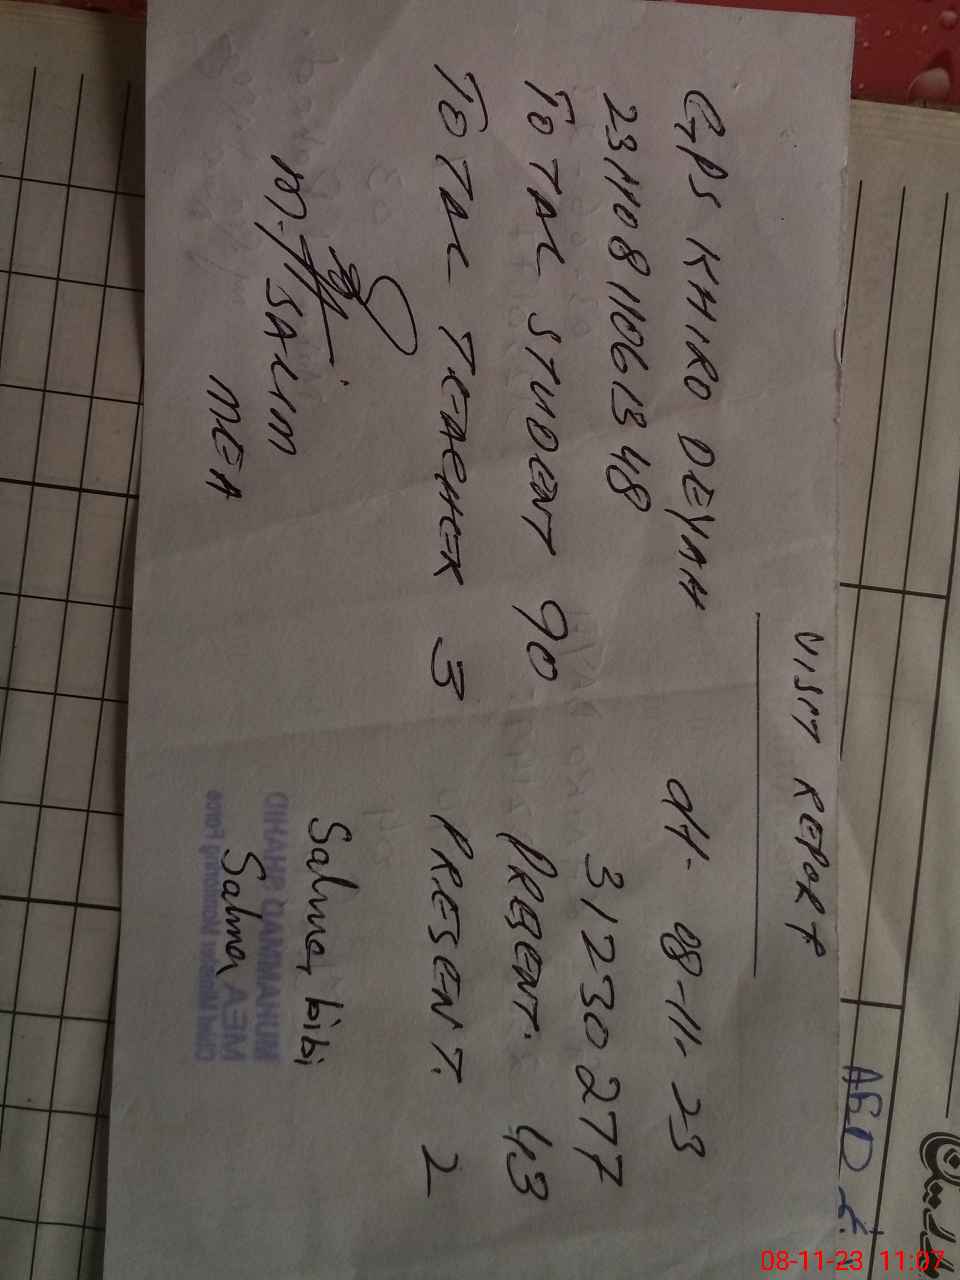 VISIT REPORT
GPS KHIRO DEYAH dt. 08-11-23
23110811061348 31230277
TOTAL STUDENT 90 PRESENT. 43
TOTAL TEACHER 3 PRESENT. 2
M. SALIM
MEA
Salma, bibi
Salma
MUHAMMAD SHAHID
MEA
Chief Minister's Monitoring Force
ABD
08-11-23 11:07